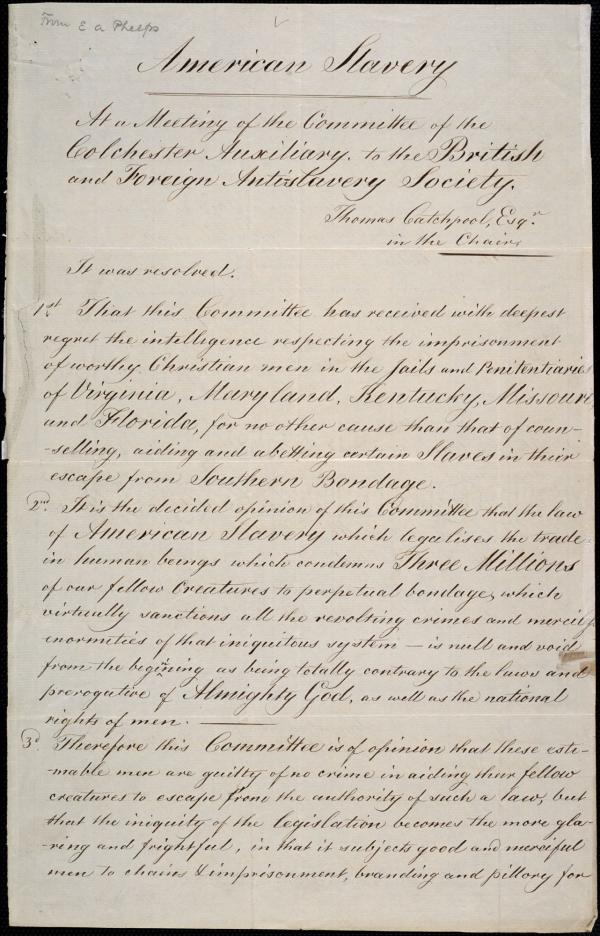 From E A Phelps
American Slavery
At a Meeting of the Committee of the
Colchester Auxiliary, to the British
and Foreign Antislavery Society,
Thomas Catchpool, Esqr.
in the Chair,
It was resolved.
1st That this Committee has received with deepest
regret the intelligence respecting the imprisonment
of worthy Christian men in the Jails and Penitentiaries
of Virginia, Maryland, Kentucky, Missouri,
and Florida, for no other cause than that of coun-
-selling, aiding and abetting certain Slaves in their
escape from Southern Bondage.
2nd. It is the decided opinion of this Committee that the law
of American Slavery which legalises the trade
in human beings which condemns Three Millions
of our fellow Creatures to perpetual bondage, which
virtually sanctions all the revolting crimes and
enormities of that iniquitous system — is null and void
from the beginning as being totally contrary to the laws and
prerogative of Almighty God, as well as the national
rights of men.
3d. Therefore this Committee is of opinion that these esti-
-mable men are guilty of no crime in aiding their fellow
creatures to escape from the authority of such a law, but
that the iniquity of the legislation becomes the more gla-
-ring and frightful, in that it subjects good and merciful
men to chains & imprisonment, branding and pillory for